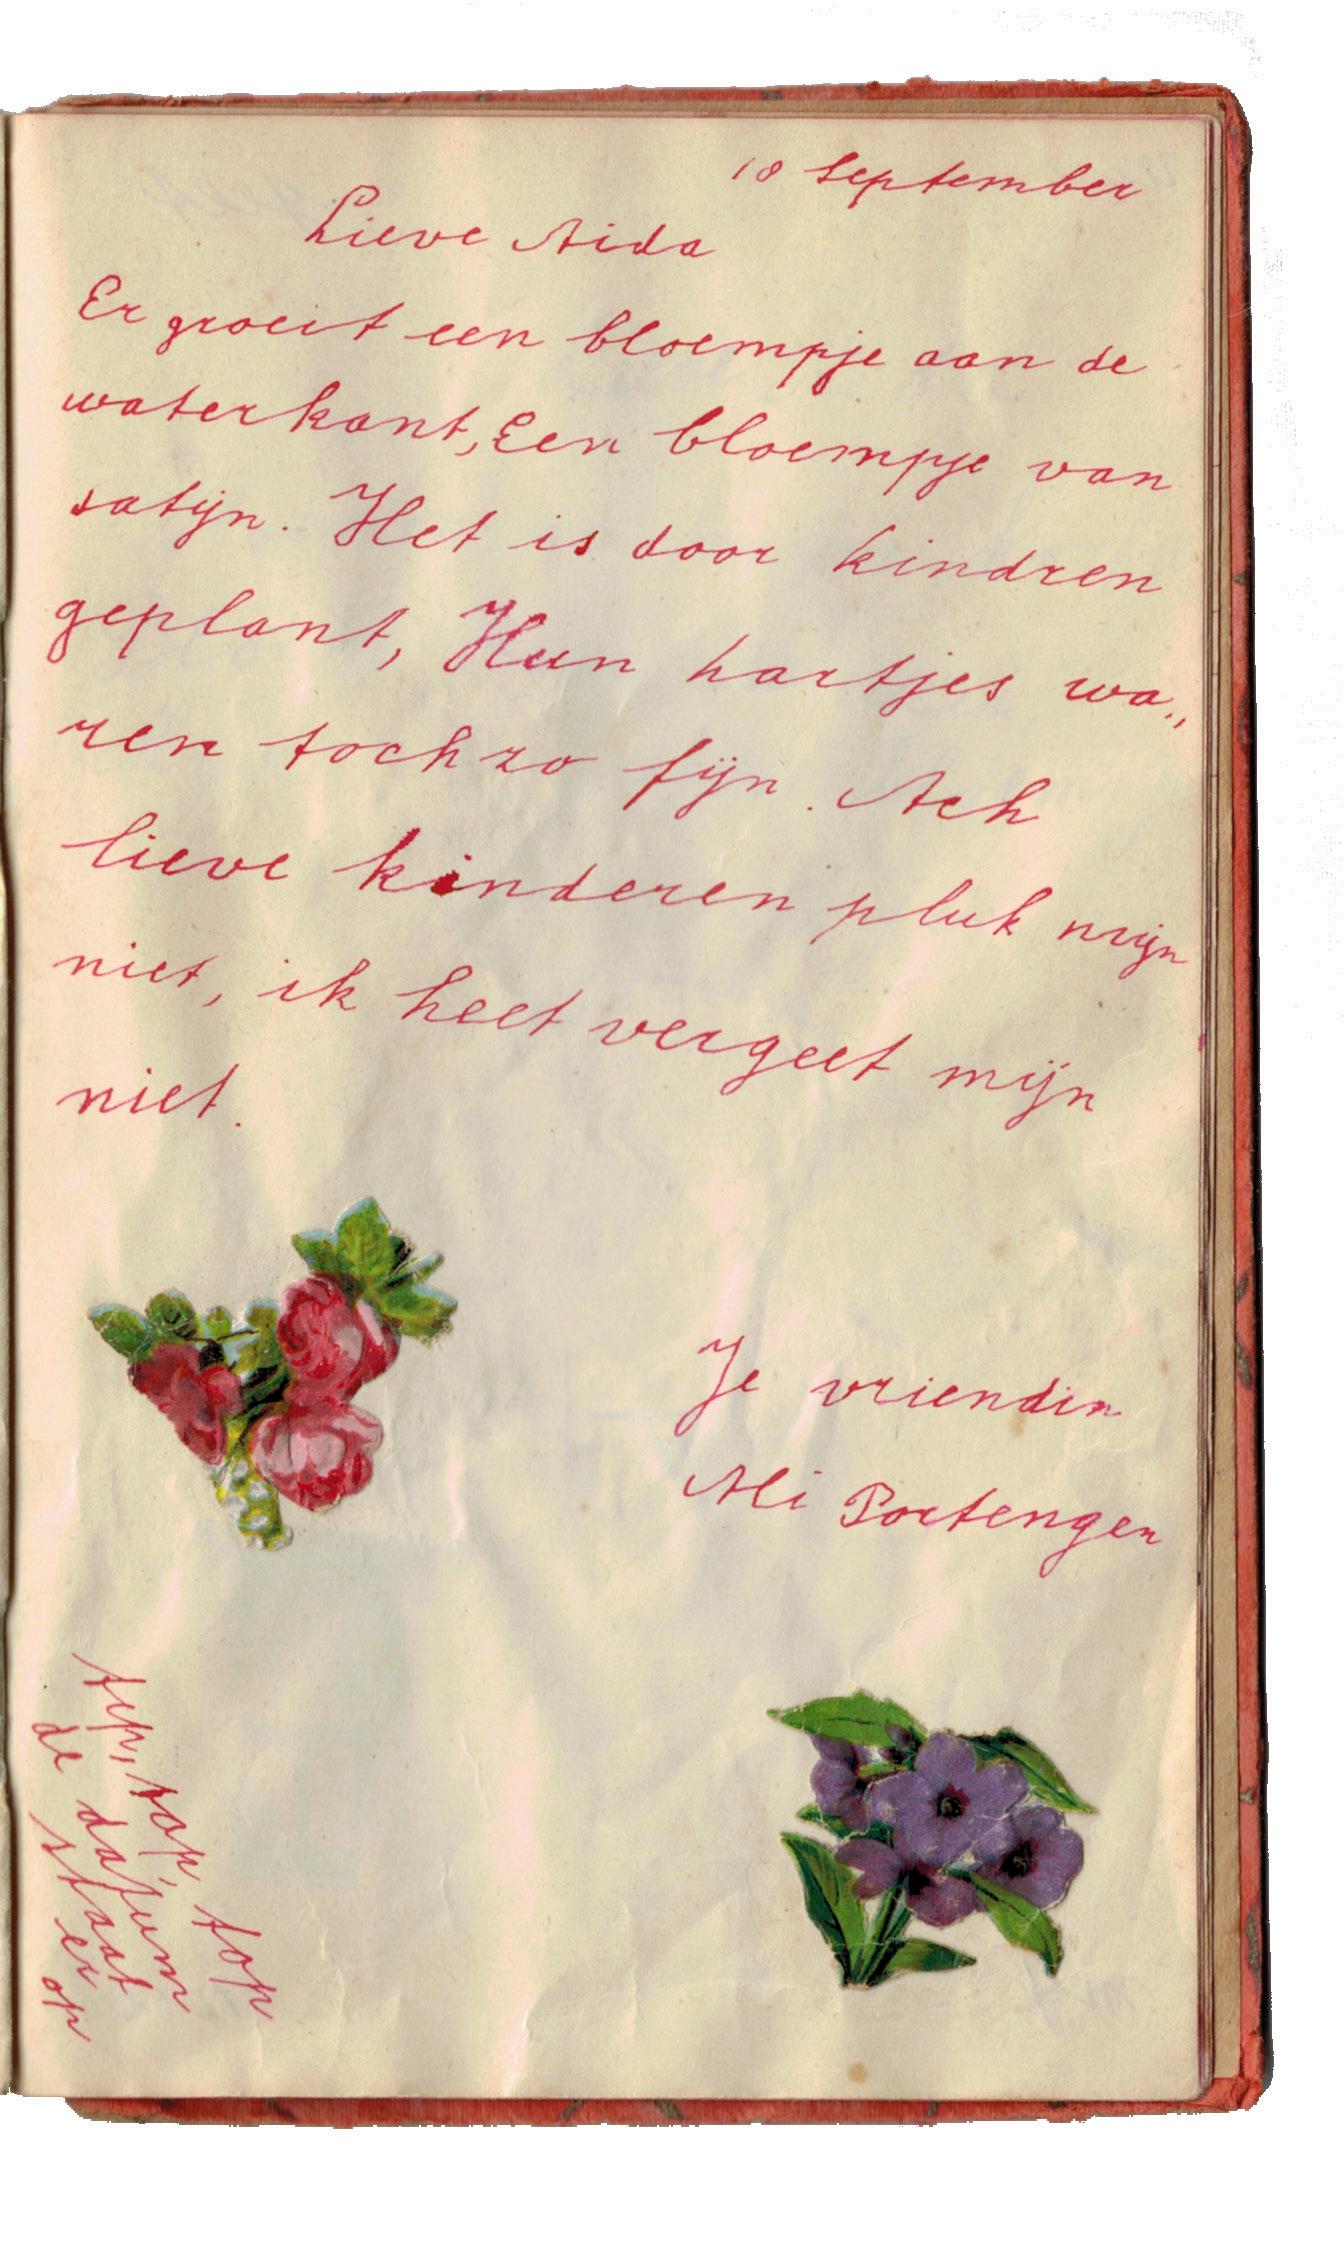 18 September
Lieve Aida
Er groeit een bloempje aan de
waterkant, Een bloempje van
satijn. Het is door kindren
geplant, Hun hartjes wa„
ren toch zo fijn. Ach
lieve kinderen pluk mijn
niet, ik heet vergeet mijn
niet.
Je vriendin
Ali Portengen
tip, tap, top
de datum
staat
er
op